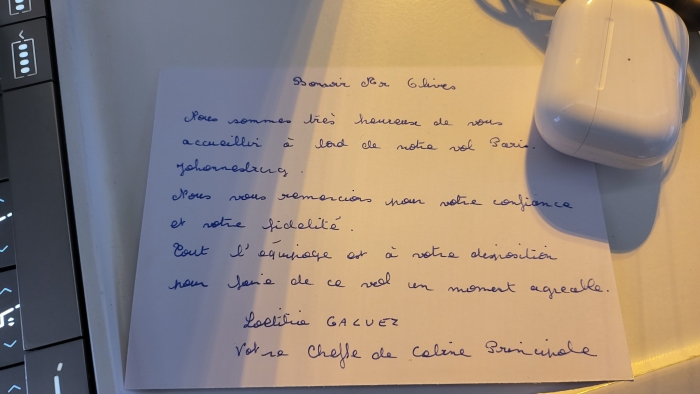 Bonsoir Mr Olives
Nous sommes très heureux de vous
accueillir à bord de notre vol Paris.
Johannesburg.
Nous vous remercions pour votre confiance
et votre fidélité.
Tout l'équipage est à votre disposition
pour faire de ce vol un moment agréable.
Laetitia GALVEZ
Votre Cheffe de Cabine Principale